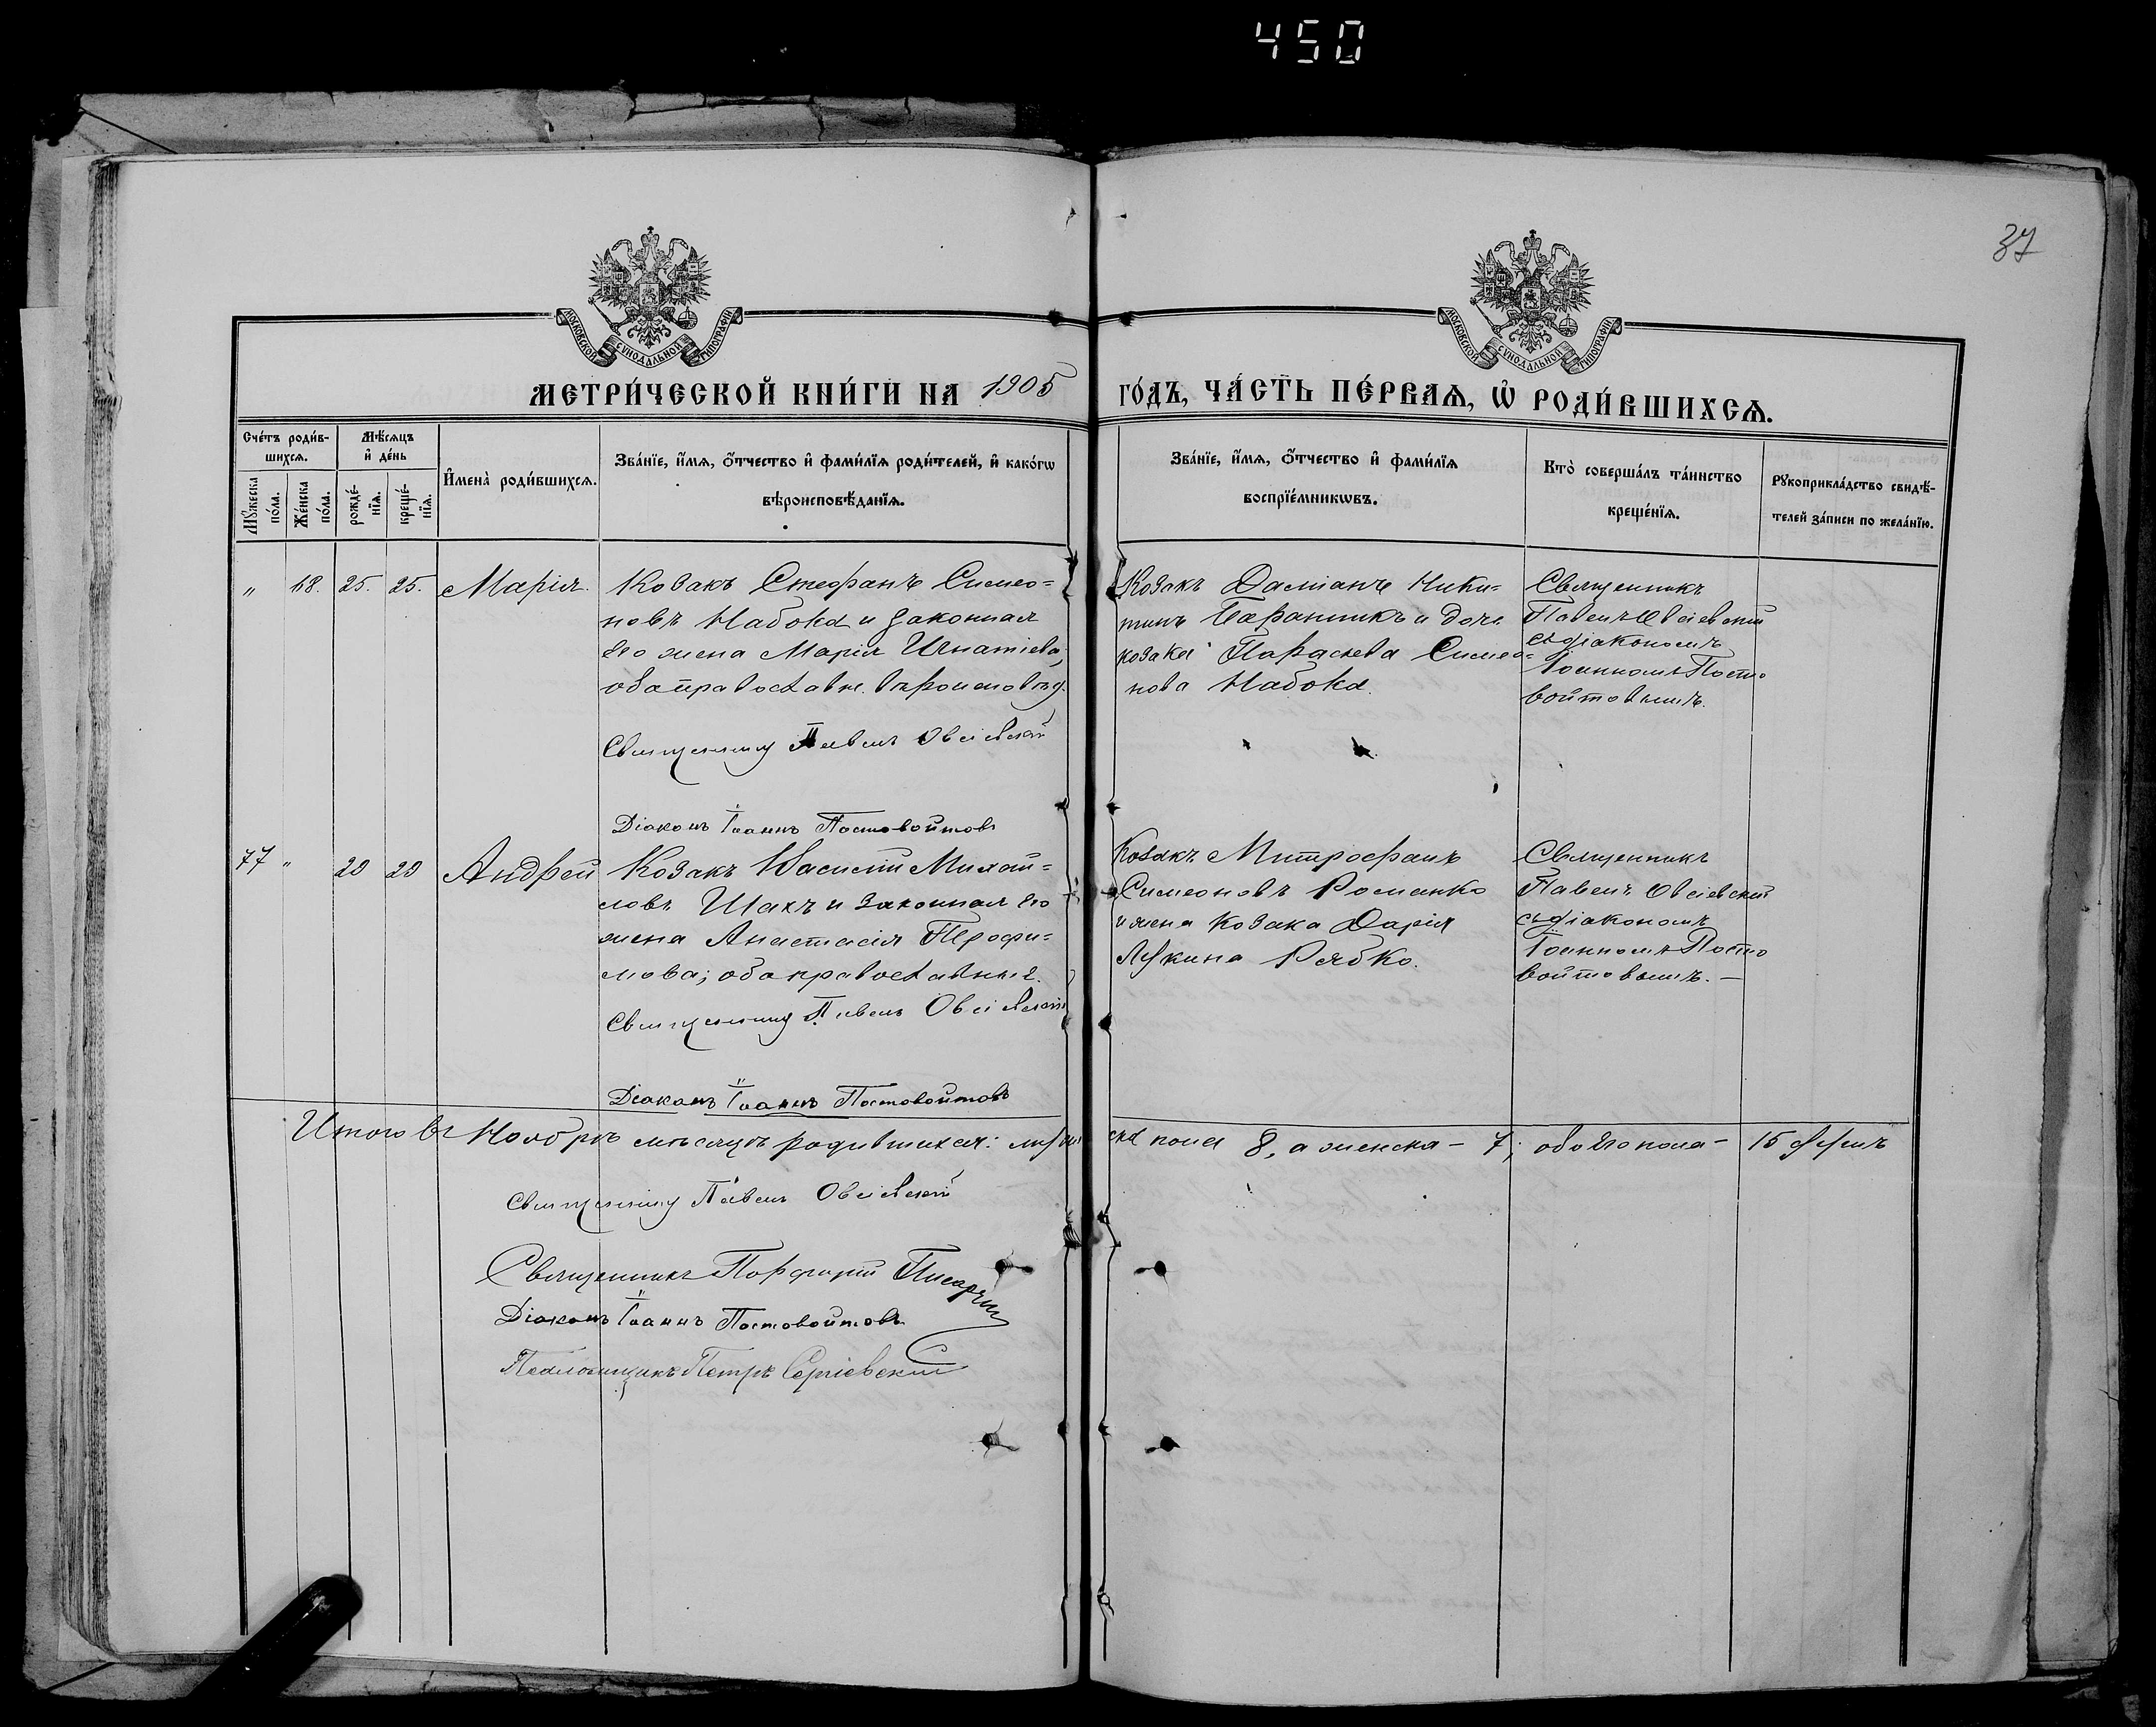 450
37
МОСКОВСКОЙ СѴНОДАЛЬНОЙ ТИПОГРАФІИ
МОСКОВСКОЙ СѴНОДАЛЬНОЙ ТИПОГРАФІИ
МЕТРИ́ЧЕСКОЙ КНИ́ГИ НА 1905
ГО́ДЪ, ЧА́СТЬ ПЕ́РВАѦ, Ѡ҆ РОДИ́ВШИХСѦ.
Сче́тъ роди́в-
шихсѧ.
Мꙋ́жеска по́ла.
Же́нска по́ла.
Мѣ́сѧцъ
и҆ де́нь
рожде́-
нїѧ.
креще́-
нїѧ.
И҆мена̀ роди́вшихсѧ.
Зва́нїе, и҆́мѧ, ѻ҆́тчество и҆ фами́лїѧ роди́телей, и҆ како́гѡ
вѣроисповѣ́данїѧ.
Зва́нїе, и҆́мѧ, ѻ҆́тчество и҆ фами́лїѧ
воспрїе́мникѡвъ.
Кто̀ соверша́лъ та́инство
креще́нїѧ.
Рꙋкоприкла́дство свидѣ́-
телей за́писи по жела́нїю.
„ 68. 25. 25. Марія.
Козакъ Стефанъ Симео=
новъ Набока и законная
его жена Марія Игнатіева;
оба православн. вѣроисповѣд.
Священникъ Павелъ Овсіевскій
Діаконъ Іоаннъ Постовойтовъ
Козакъ Даміанъ Ники=
тинъ Баранникъ и дочь
козака Параскева Симео=
нова Набока.
Священникъ
Павелъ Овсіевскій
съ діакономъ
Іоанномъ Посто
войтовымъ.
77 „ 29 29 Андрей
Козакъ Василій Михай=
ловъ Шахъ и законная его
жена Анастасія Трофи=
мова; оба православные.
Священникъ Павелъ Овсіевскій
Діаконъ Іоаннъ Постовойтовъ
Козакъ Митрофанъ
Симеоновъ Романко
и жена козака Дарія
Лукина Рябко.
Священникъ
Павелъ Овсіевскій
съ діакономъ
Іоанномъ Посто
войтовымъ. —
Итого въ Ноябрѣ мѣсяцѣ родившихся: муже
ска пола 8, а женска – 7; обоего пола – 15 душъ
Священникъ Павелъ Овсіевскій
Священникъ Порфирій
Діаконъ Іоаннъ Постовойтовъ
Псаломщикъ Петръ Сергіевскій